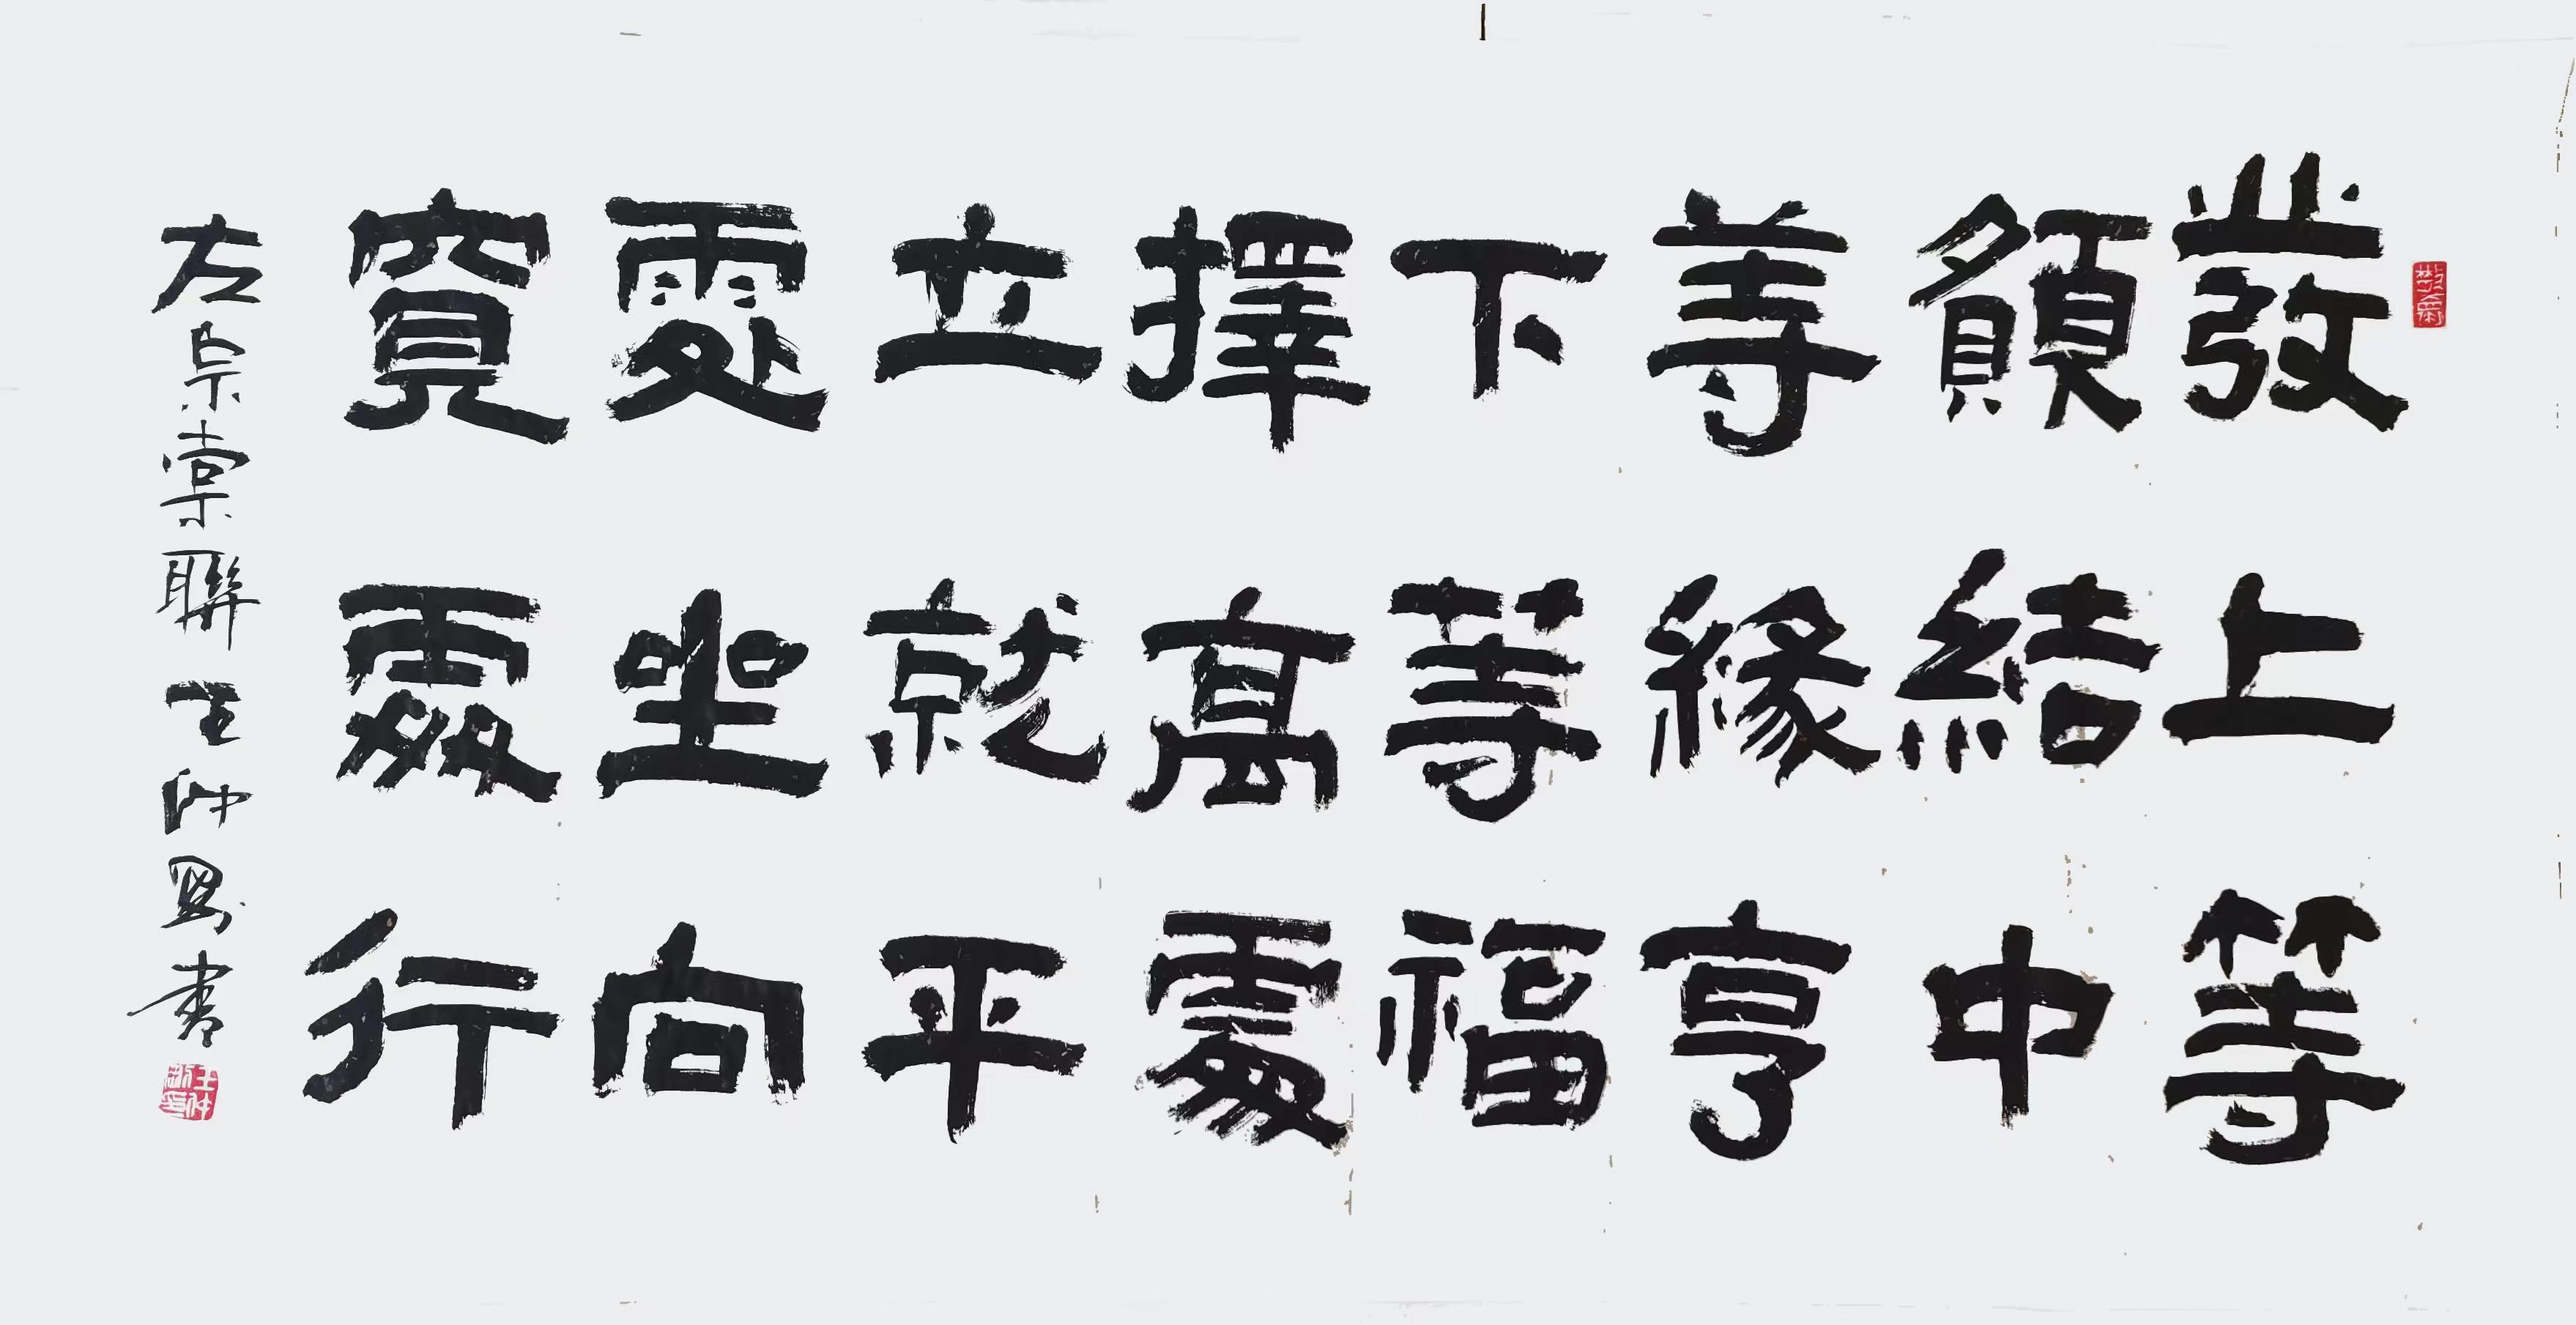 發上等
願結中
等緣享
下等福
擇高處
立就平
處坐向
寬處行
左宗棠聯 王仲勇書